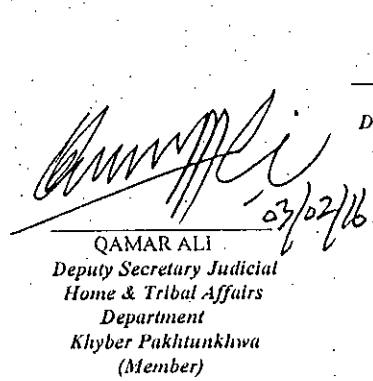 D
03/02/16
QAMAR ALI
Deputy Secretary Judicial
Home & Tribal Affairs
Department
Khyber Pakhtunkhwa
(Member)